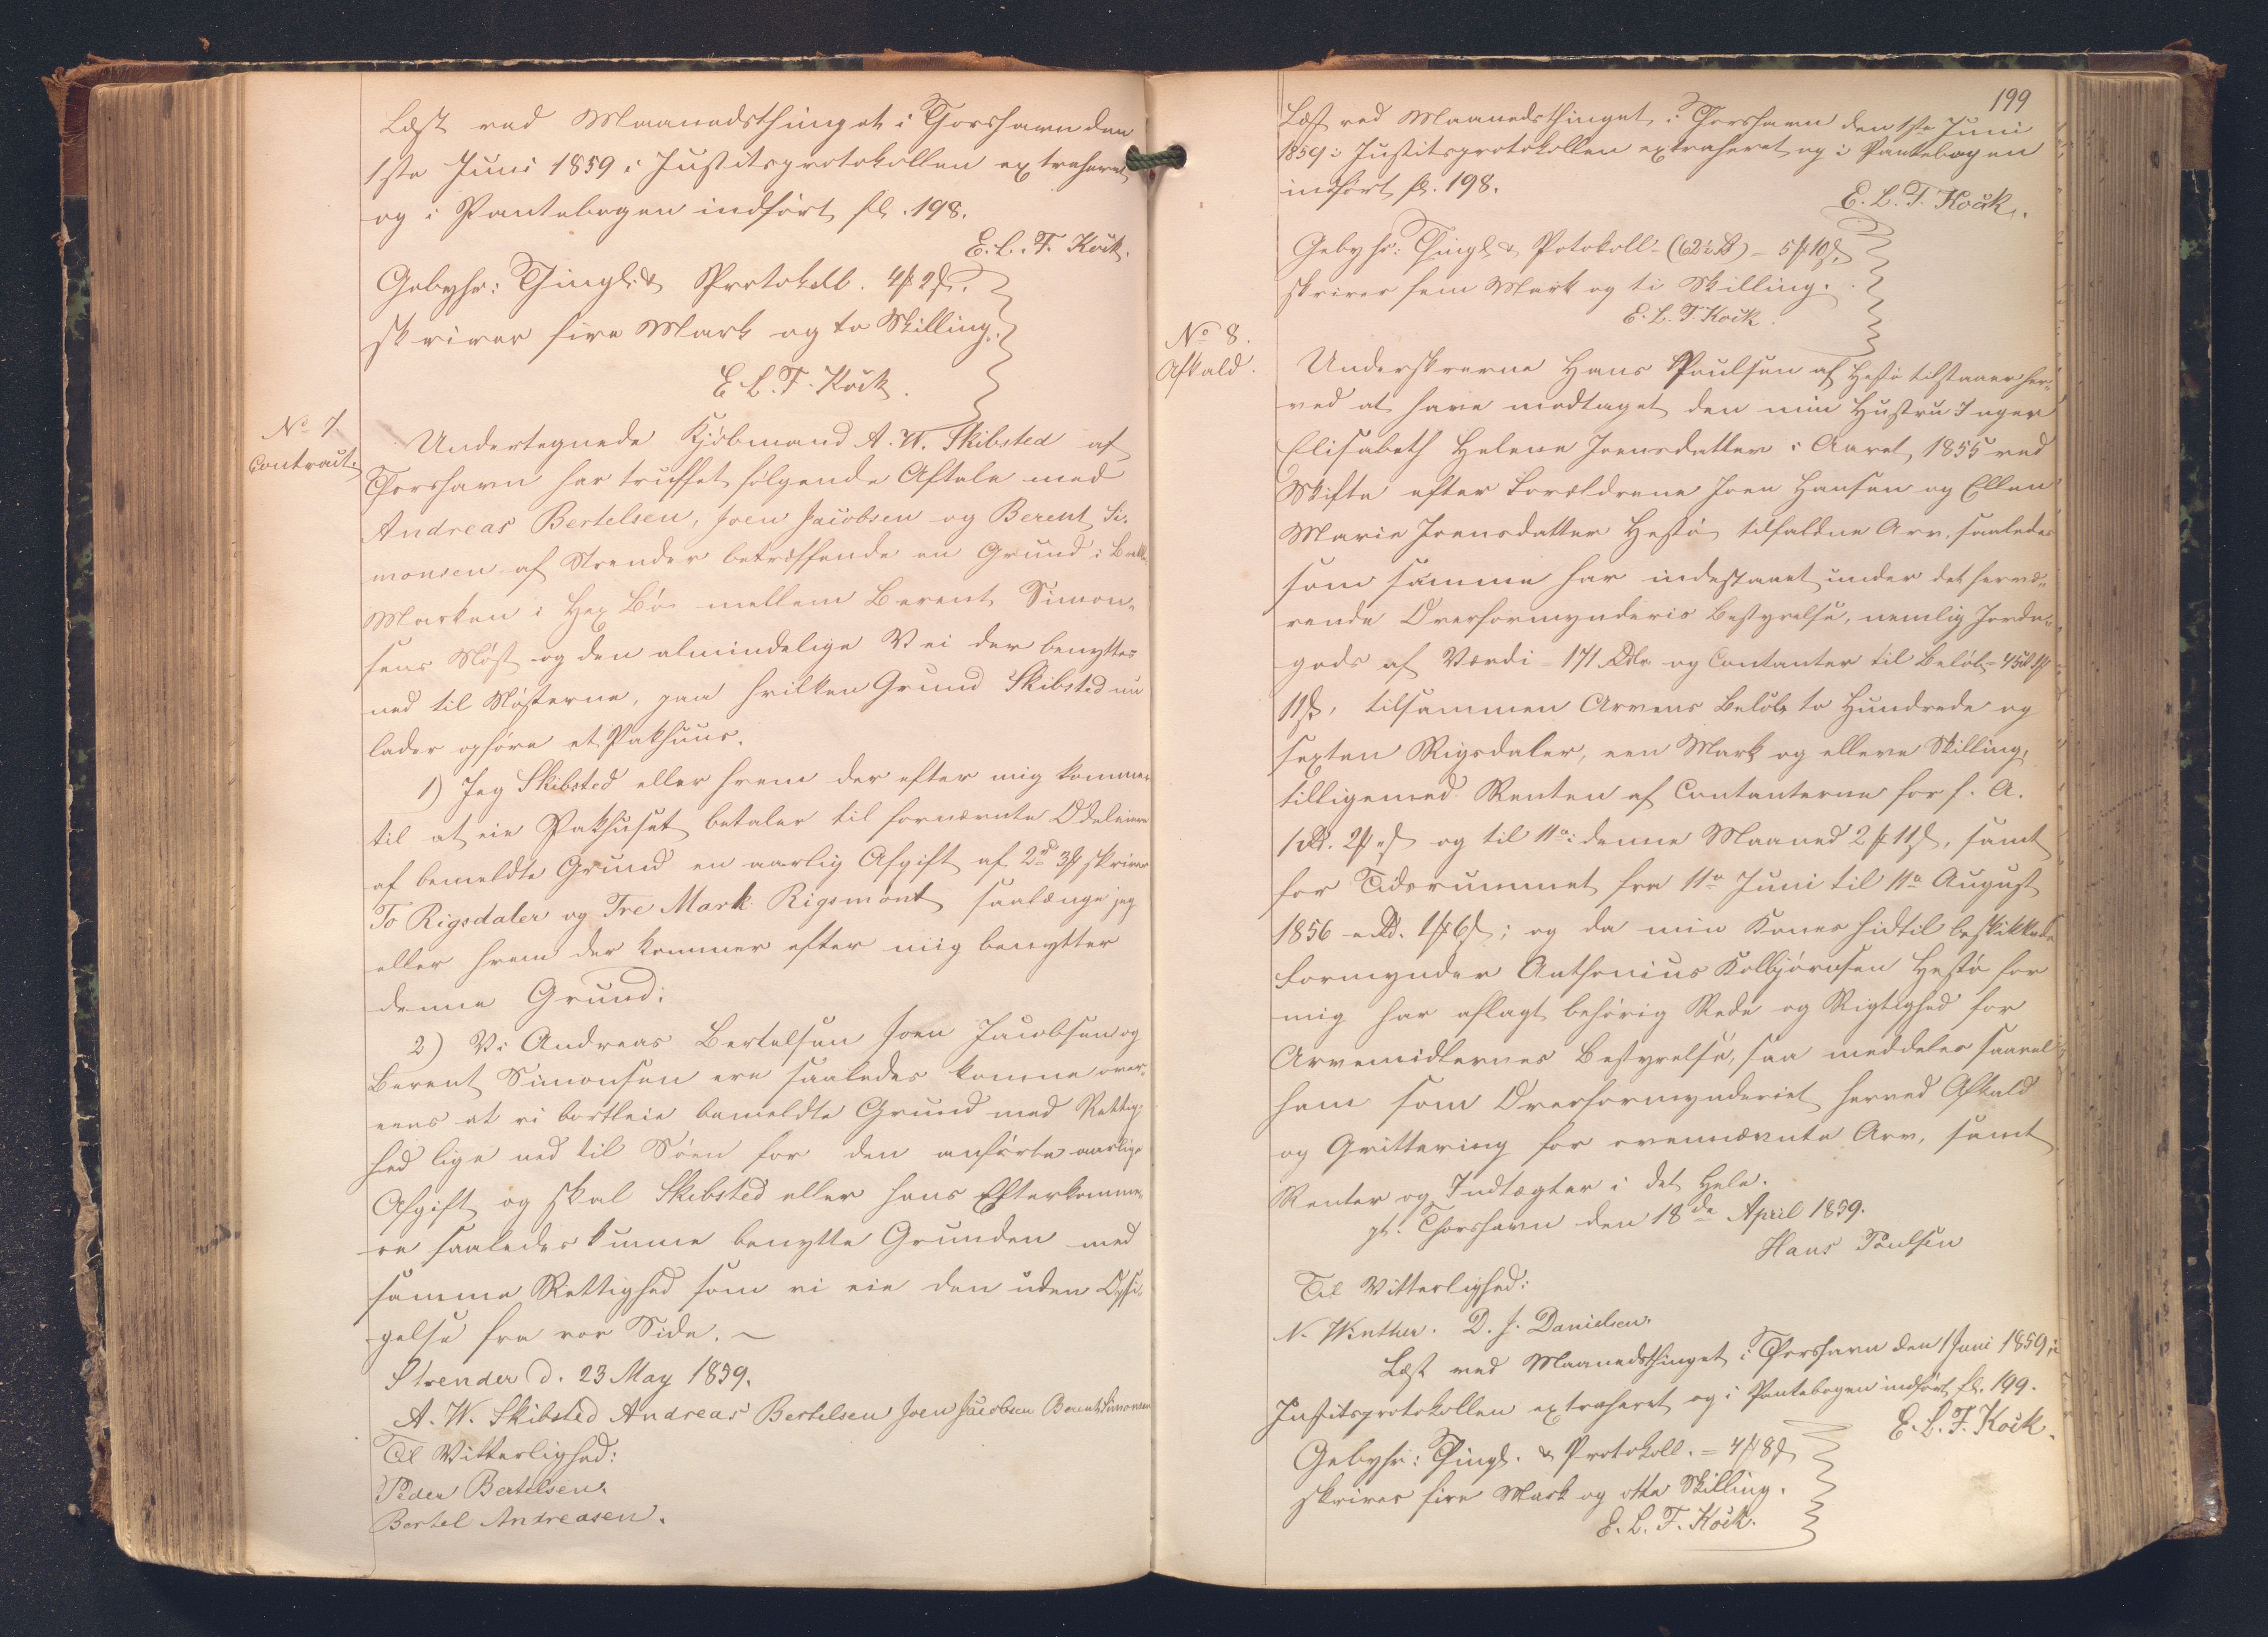 Læst ved Maanedsthinget i Thorshavn den
1ste Juni 1859 i Justitsprotokollen extraheret
og i Pantebogen indført fol. 198.
E. L. F. Kock.
Gebyhr: Thingl. & Protokoll. 4 ƒ 2 ß.
skriver fire Mark og to Skilling.
E. L. F. Kock.
No 7.
Contract.
Undertegnede Kjøbmand A. W. Skibsted af
Thorshavn har truffet følgende Aftale med
Andreas Bertelsen, Joen Jacobsen og Berent Si-
monsen af Strender betræffende en Grund i
Marken i Bø mellem Berent Simon-
sens Nøst og den almindelige Vei der benyttes
ned til Nøsterne, paa hvilken Grund Skibsted nu
lader opføre et Pakhuus.
1) Jeg Skibsted eller hvem der efter mig kommer
til at eie Pakhuset betaler til fornævnte Odelseiere
af bemeldte Grund en aarlig Afgift af 2 rd 3 ƒ skriver
To Rigsdaler og Tre Mark Rigsmønt saalænge jeg
eller hvem der kommer efter mig benytter
denne Grund:
2) Vi Andreas Bertelsen Joen Jacobsen og
Berent Simonsen ere saaledes komne over-
eens at vi bortleie bemeldte Grund med Rettig-
hed lige ned til Søen for den anførte aarlige
Afgift og skal Skibsted eller hans Efterkomme-
re saaledes kunne benytte Grunden med
samme Rettighed som vi eie den uden Opsi-
gelse fra vor Side. —
Strender d. 23 May 1859.
A. W. Skibsted Andreas Bertelsen Joen Jacobsen Berent Simonsen
Til Vitterlighed:
Peder Bertelsen.
Bertel Andreasen.
199
Læst ved Maanedsthinget i Thorshavn den 1ste Juni
1859 i Justitsprotokollen extraheret og i Pantebogen
indført fol. 198.
E. L. F. Kock.
Gebyhr: Thingl. & Potokoll - (62½ rd) - 5 ƒ 10 ß.
skriver fem Mark og ti Skilling.
E. L. F. Kock.
No 8.
Afkald.
Underskrevne Hans Poulsen af Hestø tilstaaer her-
ved at have modtaget den min Hustru Inger
Elisabeth Helene Joensdatter i Aaret 1855 ved
Skifte efter Forældrene Joen Hansen og Ellen
Marie Joensdatter Hestø tilfaldne Arv, saaledes
som samme har indestaaet under det hervæ-
rende Overformynderis Bestyrelse, nemlig Jorde-
gods af Værdi 171 Rdlr og Contanter til Beløb 45 rd 1 ƒ
11 ß, tilsammen Arvens Beløb to Hundrede og
sexten Rigsdaler, een Mark og elleve Skilling,
tilligemed Renten af Contanterne for f. A.
1 rd. 2 ƒ " ß og til 11te denne Maaned 2 ƒ 11 ß, samt
for Tidsrummet fra 11te Juni til 11te August
1856 " rd. 1 ƒ 6 ß; og da min Kones hidtil beskikkede
Formynder Anthonius Kolbjørnsen Hestø for
mig har aflagt behørig Rede og Rigtighed for
Arvemidlernes Bestyrelse, saa meddeles saavel
ham som Overformynderiet herved Afkald
og Qvittering for ovennævnte Arv, samt
Renter og Indtægter i det Hele.
pt. Thorshavn den 18de April 1859.
Hans Poulsen
Til Vitterlighed:
N. Winther. D. J. Danielsen.
Læst ved Maanedsthinget i Thorshavn den 1 Juni 1859, i
Justitsprotokollen extraheret og i Pantebogen indført fol. 199.
E. L. F. Kock.
Gebyhr: Thingl. & Protokoll. = 4 ƒ 8 ß
skriver fire Mark og otte Skilling.
E. L. F. Kock.